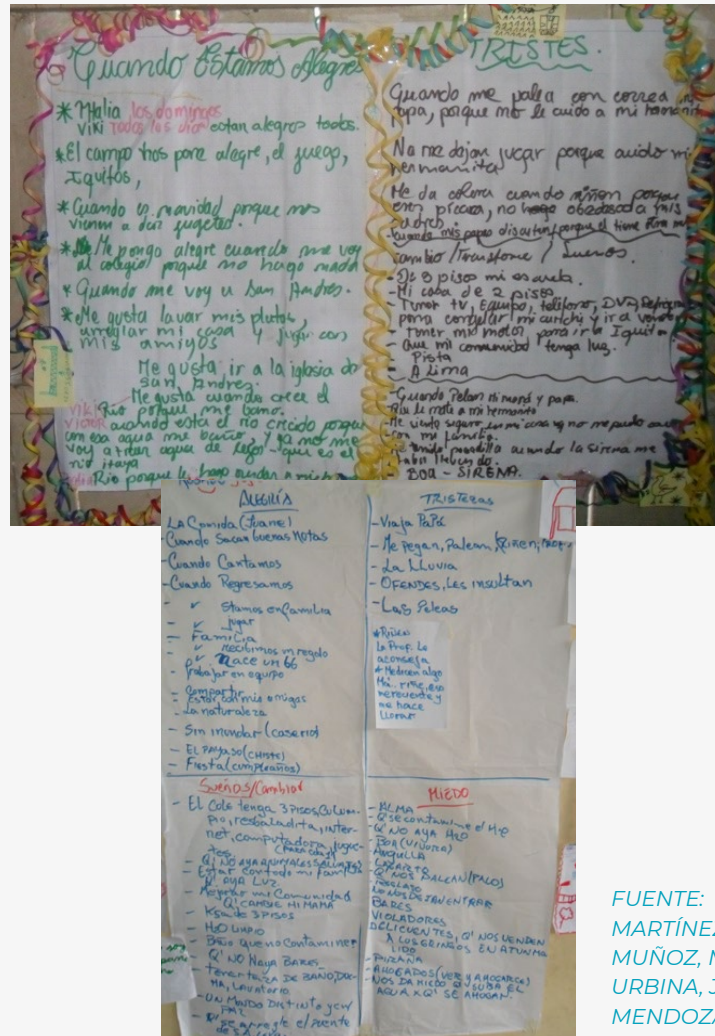 Cuando Estamos Alegres
* Thalia los domingos
Viki todos los dias estan alegres todos.
* El campo nos pone alegre, el juego,
Iquitos,
* Cuando es navidad porque nos
vienen a dar juguetes.
* Me pongo alegre cuando me voy
al colegio porque no hago nada
* Quando me voy a San Andres.
* Me gusta lavar mis platos,
arreglar mi casa y jugar con
mis amigos
Me gusta ir a la iglesia de
San Andres.
Me gusta cuando crece el
Viki Rio porque me baño.
Victor cuando esta el rio crecido porque
con esa agua me baño, y ya no me
voy a traer agua de lejos - que es el
rio itaya
Rio porque le hago nadar a mi
TRISTES.
Quando me palea con correa mi
papa, porque no le cuido a mi hermanito
No me dejan jugar porque cuido mi
hermanita
Me da colera cuando riñen porque
no hago
cuando mis papas discuten porque el tiene otra
Cambio / Transforme / Suenos.
- De 3 pisos mi escuela.
- Mi casa de 2 pisos
- Tener TV, Equipo, telefono, DVD, Refrigera
para congelar mi curichi y ir a vender
- Tener mi motor para ir a Iquitos
- Que mi comunidad tenga luz.
- Pista
- A Lima
- Cuando Pelean mi mamá y papa.
a mi hermanito
Me siento seguro en mi casa
con mi familia.
pesadilla cuando la sirena me
BOA - SIRENA.
ALEGRÍA
LA Comida (Juane)
- Cuando Sacan buenas Notas
- Cuando Cantamos
- Cuando Regresamos
- ✓ Stamos en familia
- ✓ jugar
- Familia
✓ Recibimos m regalo
- ✓ Nace un bb
- Trabajar en equipo
- Compartir
- Estar con mis amigas
- La naturaleza
- Sin inundar (caserio)
- EL PAYASO (CHISTE)
- Fiesta (cumpleaños)
TRISTEZAS
- Viaja PaPá
- Me pegan, Palean, Riñen,
- La LLuvia
- OFENDES, Les insultan
- Las Peleas
* Riñen
La Prof. Le
aconseja
* Me dicen algo
Má.. riñe, eso
me
me hace
LLorar
Sueños/Cambiar
- El Cole tenga 3 PISOS, Columpio
pio, resbaladita, inter-
net, computadora, jugue-
tes
- Q' NO AYA ANIMALES
- Estar con todo mi familia
- Q' AYA LUZ
- Mejorar mi Comunidad
- Q' CAMBIE MI MAMA
- Ksa de 3 PISOS
- H2O LIMPIO
- Baño que no Contamine
- Q' NO HAYA BARES
- BAÑO, DUC-
HA, Lavatorio
- UN MUNDO DISTINTO y en
PAZ
- se arregle el puente
MIEDO
- ALMA
- Q' se contamine el H2O
- Q' NO AYA H2O
- BOA (VIVORA)
- ANGUILLA
- LAGARTO
- Q' NOS PALEAN (PALOS)
- NOS DEJAN ENTRAR
BARES
VIOLADORES
DELICUENTES, Q' NOS VENDEN
A LOS GRINGOS EN
- PAIRAÑA
- AHOGADOS (VER y AHOGARCE)
- NOS DA MIEDO Q' SUBA EL
AGUA X Q' SE AHOGAN.
FUENTE:
MARTÍNEZ
MUÑOZ, M
URBINA, J
MENDOZA